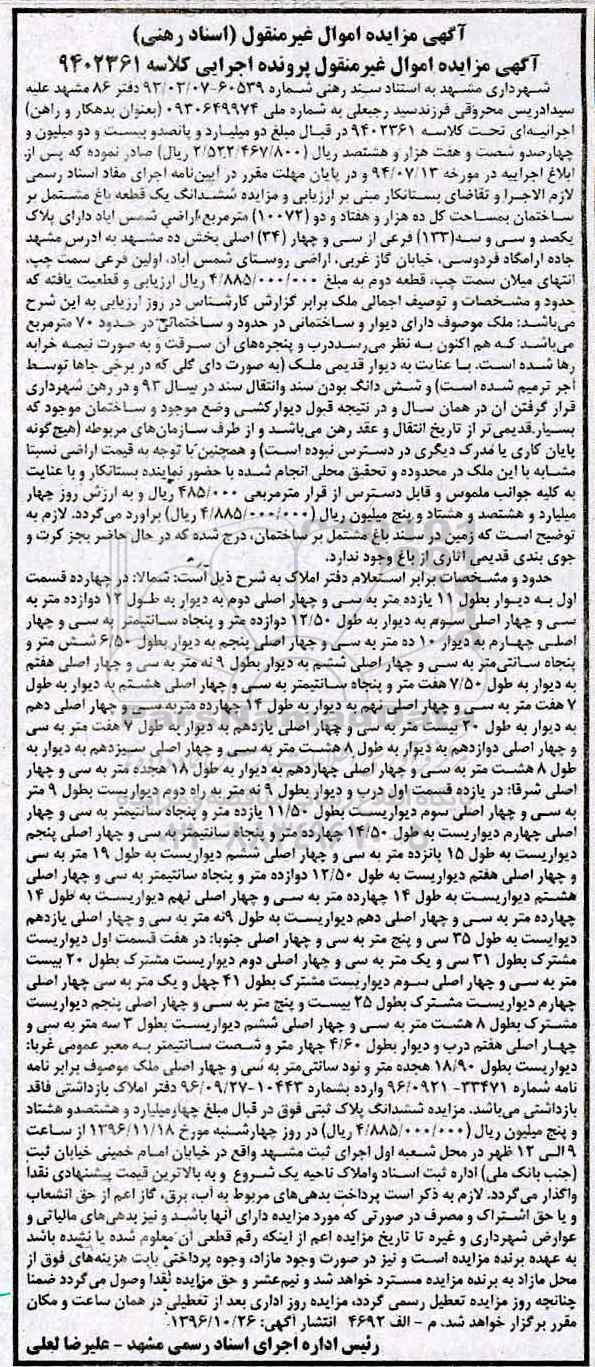 آگهی مزایده اموال غیرمنقول (اسناد رهنی)
آگهی مزایده اموال غیرمنقول پرونده اجرایی کلاسه ۹۴۰۲۳۶۱
شهرداری مشهد به استناد سند رهنی شماره ۶۰۵۳۹-۹۲/۰۳/۰۷ دفتر ۸۶ مشهد علیه
سیدادریس محروقی فرزندسید رجبعلی به شماره ملی ۰۹۳۰۶۴۹۹۷۴ (بعنوان بدهکار و راهن)
اجرائیه‌ای تحت کلاسه ۹۴۰۲۳۶۱ در قبال مبلغ دو میلیارد و پانصدو بیست و دو میلیون و
چهارصدو شصت و هفت هزار و هشتصد ریال (۲/۵۲۲/۴۶۷/۸۰۰ ریال) صادر نموده که پس از
ابلاغ اجراییه در مورخه ۹۴/۰۷/۱۳ و در پایان مهلت مقرر در آیین‌نامه اجرای مفاد اسناد رسمی
لازم الاجرا و تقاضای بستانکار مبنی بر ارزیابی و مزایده ششدانگ یک قطعه باغ مشتمل بر
ساختمان بمساحت کل ده هزار و هفتاد و دو (۱۰۰۷۲) مترمربع اراضی شمس آباد دارای پلاک
یکصد و سی و سه(۱۳۳) فرعی از سی و چهار (۳۴) اصلی بخش ده مشهد به آدرس مشهد
جاده آرامگاه فردوسی، خیابان گاز غربی، اراضی روستای شمس آباد، اولین فرعی سمت چپ،
انتهای میلان سمت چپ، قطعه دوم به مبلغ ۴/۸۸۵/۰۰۰/۰۰۰ ریال ارزیابی و قطعیت یافته که
حدود و مشخصات و توصیف اجمالی ملک برابر گزارش کارشناس در روز ارزیابی به این شرح
می‌باشد: ملک موصوف دارای دیوار و ساختمانی در حدود و ساختمانی در حدود ۷۰ مترمربع
می‌باشد که هم اکنون به نظر می‌رسددرب و پنجره‌های آن سرقت و به صورت نیمه خرابه
رها شده است. با عنایت به دیوار قدیمی ملک (به صورت دای گلی که در برخی جاها توسط
آجر ترمیم شده است) و شش دانگ بودن سند وانتقال سند در سال ۹۳ و در رهن شهرداری
قرار گرفتن آن در همان سال و در نتیجه قبول دیوارکشی وضع موجود و ساختمان موجود که
بسیار قدیمی‌تر از تاریخ انتقال و عقد رهن می‌باشد و از طرف سازمان‌های مربوطه (هیچ‌گونه
پایان کاری یا مدرک دیگری در دسترس نبوده است) و همچنین با توجه به قیمت اراضی نسبتا
مشابه با این ملک در محدوده و تحقیق محلی انجام شده با حضور نماینده بستانکار و با عنایت
به کلیه جوانب ملموس و قابل دسترس از قرار مترمربعی ۴۸۵/۰۰۰ ریال و به ارزش روز چهار
میلیارد و هشتصد و هشتاد و پنج میلیون ریال (۴/۸۸۵/۰۰۰/۰۰۰ ریال) برآورد می‌گردد. لازم به
توضیح است که زمین در سند باغ مشتمل بر ساختمان، درج شده که در حال حاضر بجز کرت و
جوی بندی قدیمی آثاری از باغ وجود ندارد.
حدود و مشخصات برابر استعلام دفتر املاک به شرح ذیل است: شمالا: در چهارده قسمت
اول به دیوار بطول ۱۱ یازده متر به سی و چهار اصلی دوم به دیوار به طول ۱۲ دوازده متر به
سی و چهار اصلی سوم به دیوار به طول ۱۲/۵۰ دوازده متر و پنجاه سانتیمتر به سی و چهار
اصلی چهارم به دیوار ۱۰ ده متر به سی و چهار اصلی پنجم به دیوار بطول ۶/۵۰ شش متر و
پنجاه سانتی‌متر به سی و چهار اصلی ششم به دیوار بطول ۹ نه متر به سی و چهار اصلی هفتم
به دیوار به طول ۷/۵۰ هفت متر و پنجاه سانتیمتر به سی و چهار اصلی هشتم به دیوار به طول
۷ هفت متر به سی و چهار اصلی نهم به دیوار به طول ۱۴ چهارده متربه سی و چهار اصلی دهم
به دیوار به طول ۲۰ بیست متر به سی و چهار اصلی یازدهم به دیوار به طول ۷ هفت متر به سی
و چهار اصلی دوازدهم به دیوار به طول ۸ هشت متر به سی و چهار اصلی سیزدهم به دیوار به
طول ۸ هشت متر به سی و چهار اصلی چهاردهم به دیوار به طول ۱۸ هجده متر به سی و چهار
اصلی شرقا: در یازده قسمت اول درب و دیوار بطول ۹ نه متر به راه دوم دیواریست بطول ۹ متر
به سی و چهار اصلی سوم دیواریست بطول ۱۱/۵۰ یازده متر و پنجاه سانتیمتر به سی و چهار
اصلی چهارم دیواریست به طول ۱۴/۵۰ چهارده متر و پنجاه سانتیمتر به سی و چهار اصلی پنجم
دیواریست به طول ۱۵ پانزده متر به سی و چهار اصلی ششم دیواریست به طول ۱۹ متر به سی
و چهار اصلی هفتم دیواریست به طول ۱۲/۵۰ دوازده متر و پنجاه سانتیمتر به سی و چهار اصلی
هشتم دیواریست به طول ۱۴ چهارده متر به سی و چهار اصلی نهم دیواریست به طول ۱۴
چهارده متر به سی و چهار اصلی دهم دیواریست به طول ۹نه متر به سی و چهار اصلی یازدهم
دیوایست به طول ۳۵ سی و پنج متر به سی و چهار اصلی جنوبا: در هفت قسمت اول دیواریست
مشترک بطول ۳۱ سی و یک متر به سی و چهار اصلی دوم دیواریست مشترک بطول ۲۰ بیست
متر به سی و چهار اصلی سوم دیواریست مشترک بطول ۴۱ چهل و یک متر به سی چهار اصلی
چهارم دیواریست مشترک بطول ۲۵ بیست و پنج متر به سی و چهار اصلی پنجم دیواریست
مشترک بطول ۸ هشت متر به سی و چهار اصلی ششم دیواریست بطول ۳ سه متر به سی و
چهار اصلی هفتم درب و دیوار بطول ۴/۶۰ چهار متر و شصت سانتیمتر به معبر عمومی غربا:
دیواریست بطول ۱۸/۹۰ هجده متر و نود سانتی‌متر به سی و چهار اصلی ملک موصوف برابر نامه
نامه شماره ۳۳۴۷۱- ۹۶/۰۹۲۱ وارده بشماره ۱۰۴۴۳-۹۶/۰۹/۲۷ دفتر املاک بازداشتی فاقد
بازداشتی می‌باشد. مزایده ششدانگ پلاک ثبتی فوق در قبال مبلغ چهارمیلیارد و هشتصدو هشتاد
و پنج میلیون ریال (۴/۸۸۵/۰۰۰/۰۰۰ ریال) در روز چهارشنبه مورخ ۱۳۹۶/۱۱/۱۸ از ساعت
۹ الی ۱۲ ظهر در محل شعبه اول اجرای ثبت مشهد واقع در خیابان امام خمینی خیابان ثبت
(جنب بانک ملی) اداره ثبت اسناد واملاک ناحیه یک شروع و به بالاترین قیمت پیشنهادی نقدا
واگذار می‌گردد. لازم به ذکر است پرداخت بدهی‌های مربوط به آب، برق، گاز اعم از حق انشعاب
و یا حق اشتراک و مصرف در صورتی که مورد مزایده دارای آنها باشد و نیز بدهی‌های مالیاتی و
عوارض شهرداری و غیره تا تاریخ مزایده اعم از اینکه رقم قطعی آن معلوم شده یا نشده باشد
به عهده برنده مزایده است و نیز در صورت وجود مازاد، وجوه پرداختی بابت هزینه‌های فوق از
محل مازاد به برنده مزایده مسترد خواهد شد و نیم‌عشر و حق مزایده نقدا وصول می‌گردد ضمنا
چنانچه روز مزایده تعطیل رسمی گردد، مزایده روز اداری بعد از تعطیلی در همان ساعت و مکان
مقرر برگزار خواهد شد. م - الف ۴۶۹۲ انتشار آگهی: ۱۳۹۶/۱۰/۲۶.
رئیس اداره اجرای اسناد رسمی مشهد - علیرضا لعلی